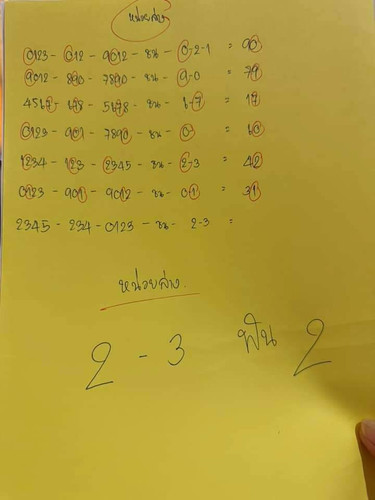 หน่วยล่าง
0123 - 012 - 9012 - ชน - 0-2-1 = 90
9012 - 890 - 7890 - ชน - 9-0 = 79
4567 - 678 - 5678 - ชน - 6-7 = 17
0123 - 901 - 7890 - ชน - 0 = 60
1234 - 123 - 2345 - ชน - 2-3 = 42
0123 - 901 - 9012 - ชน - 0-1 = 31
2345 - 234 - 0123 - ชน - 2-3 =
หน่วยล่าง.
2 - 3 ฟัน 2